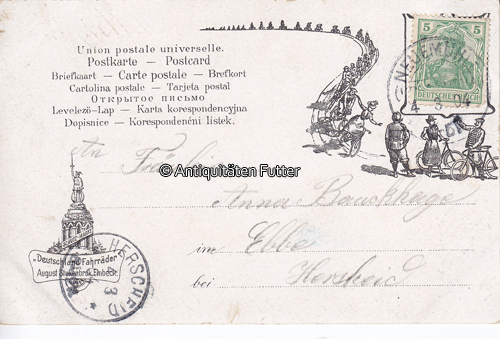 Union postale universelle.
Postkarte — Postcard
Briefkaart — Carte postale — Brefkort
Cartolina postale — Tarjeta postal
Открытое письмо
Levelező-Lap — Karta korespondencyjna
Dopisnice — Korespondenéni lístek.
5 5
DEUTSCHES REICH
An
© Antiquitäten Futter
Anna
im
Ebbe
bei
Herscheid
„Deutschland-Fahrräder"
August Stukenbrok, Einbeck.
HERSCHEID